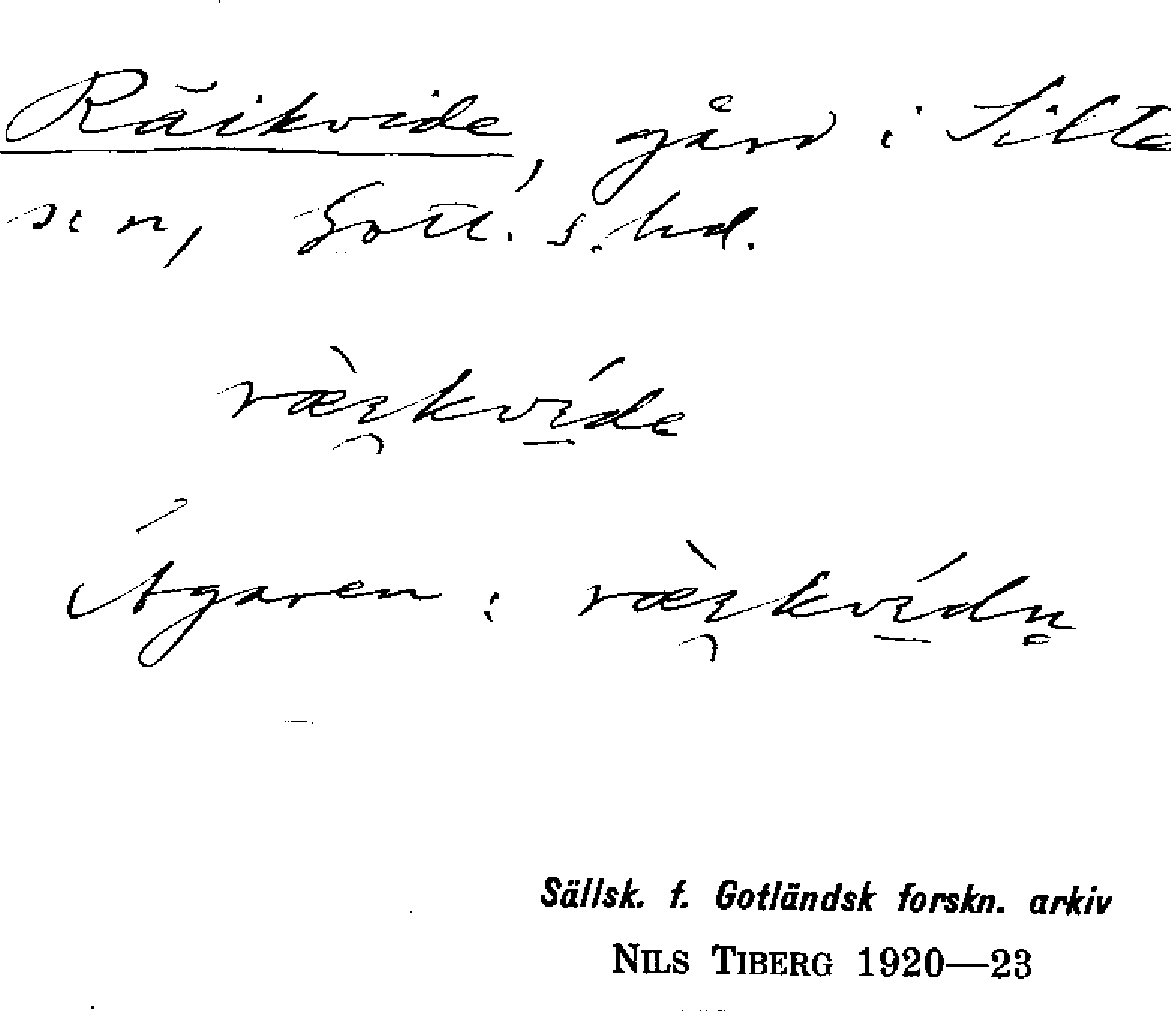 Räikvide, gård i Silte
sn, Gotl. s. hd.
ræ̀i̯kví̱de
Ägaren: ræ̀i̯kví̱dn̥
Sällsk. f. Gotländsk forskn. arkiv
NILS TIBERG 1920—23